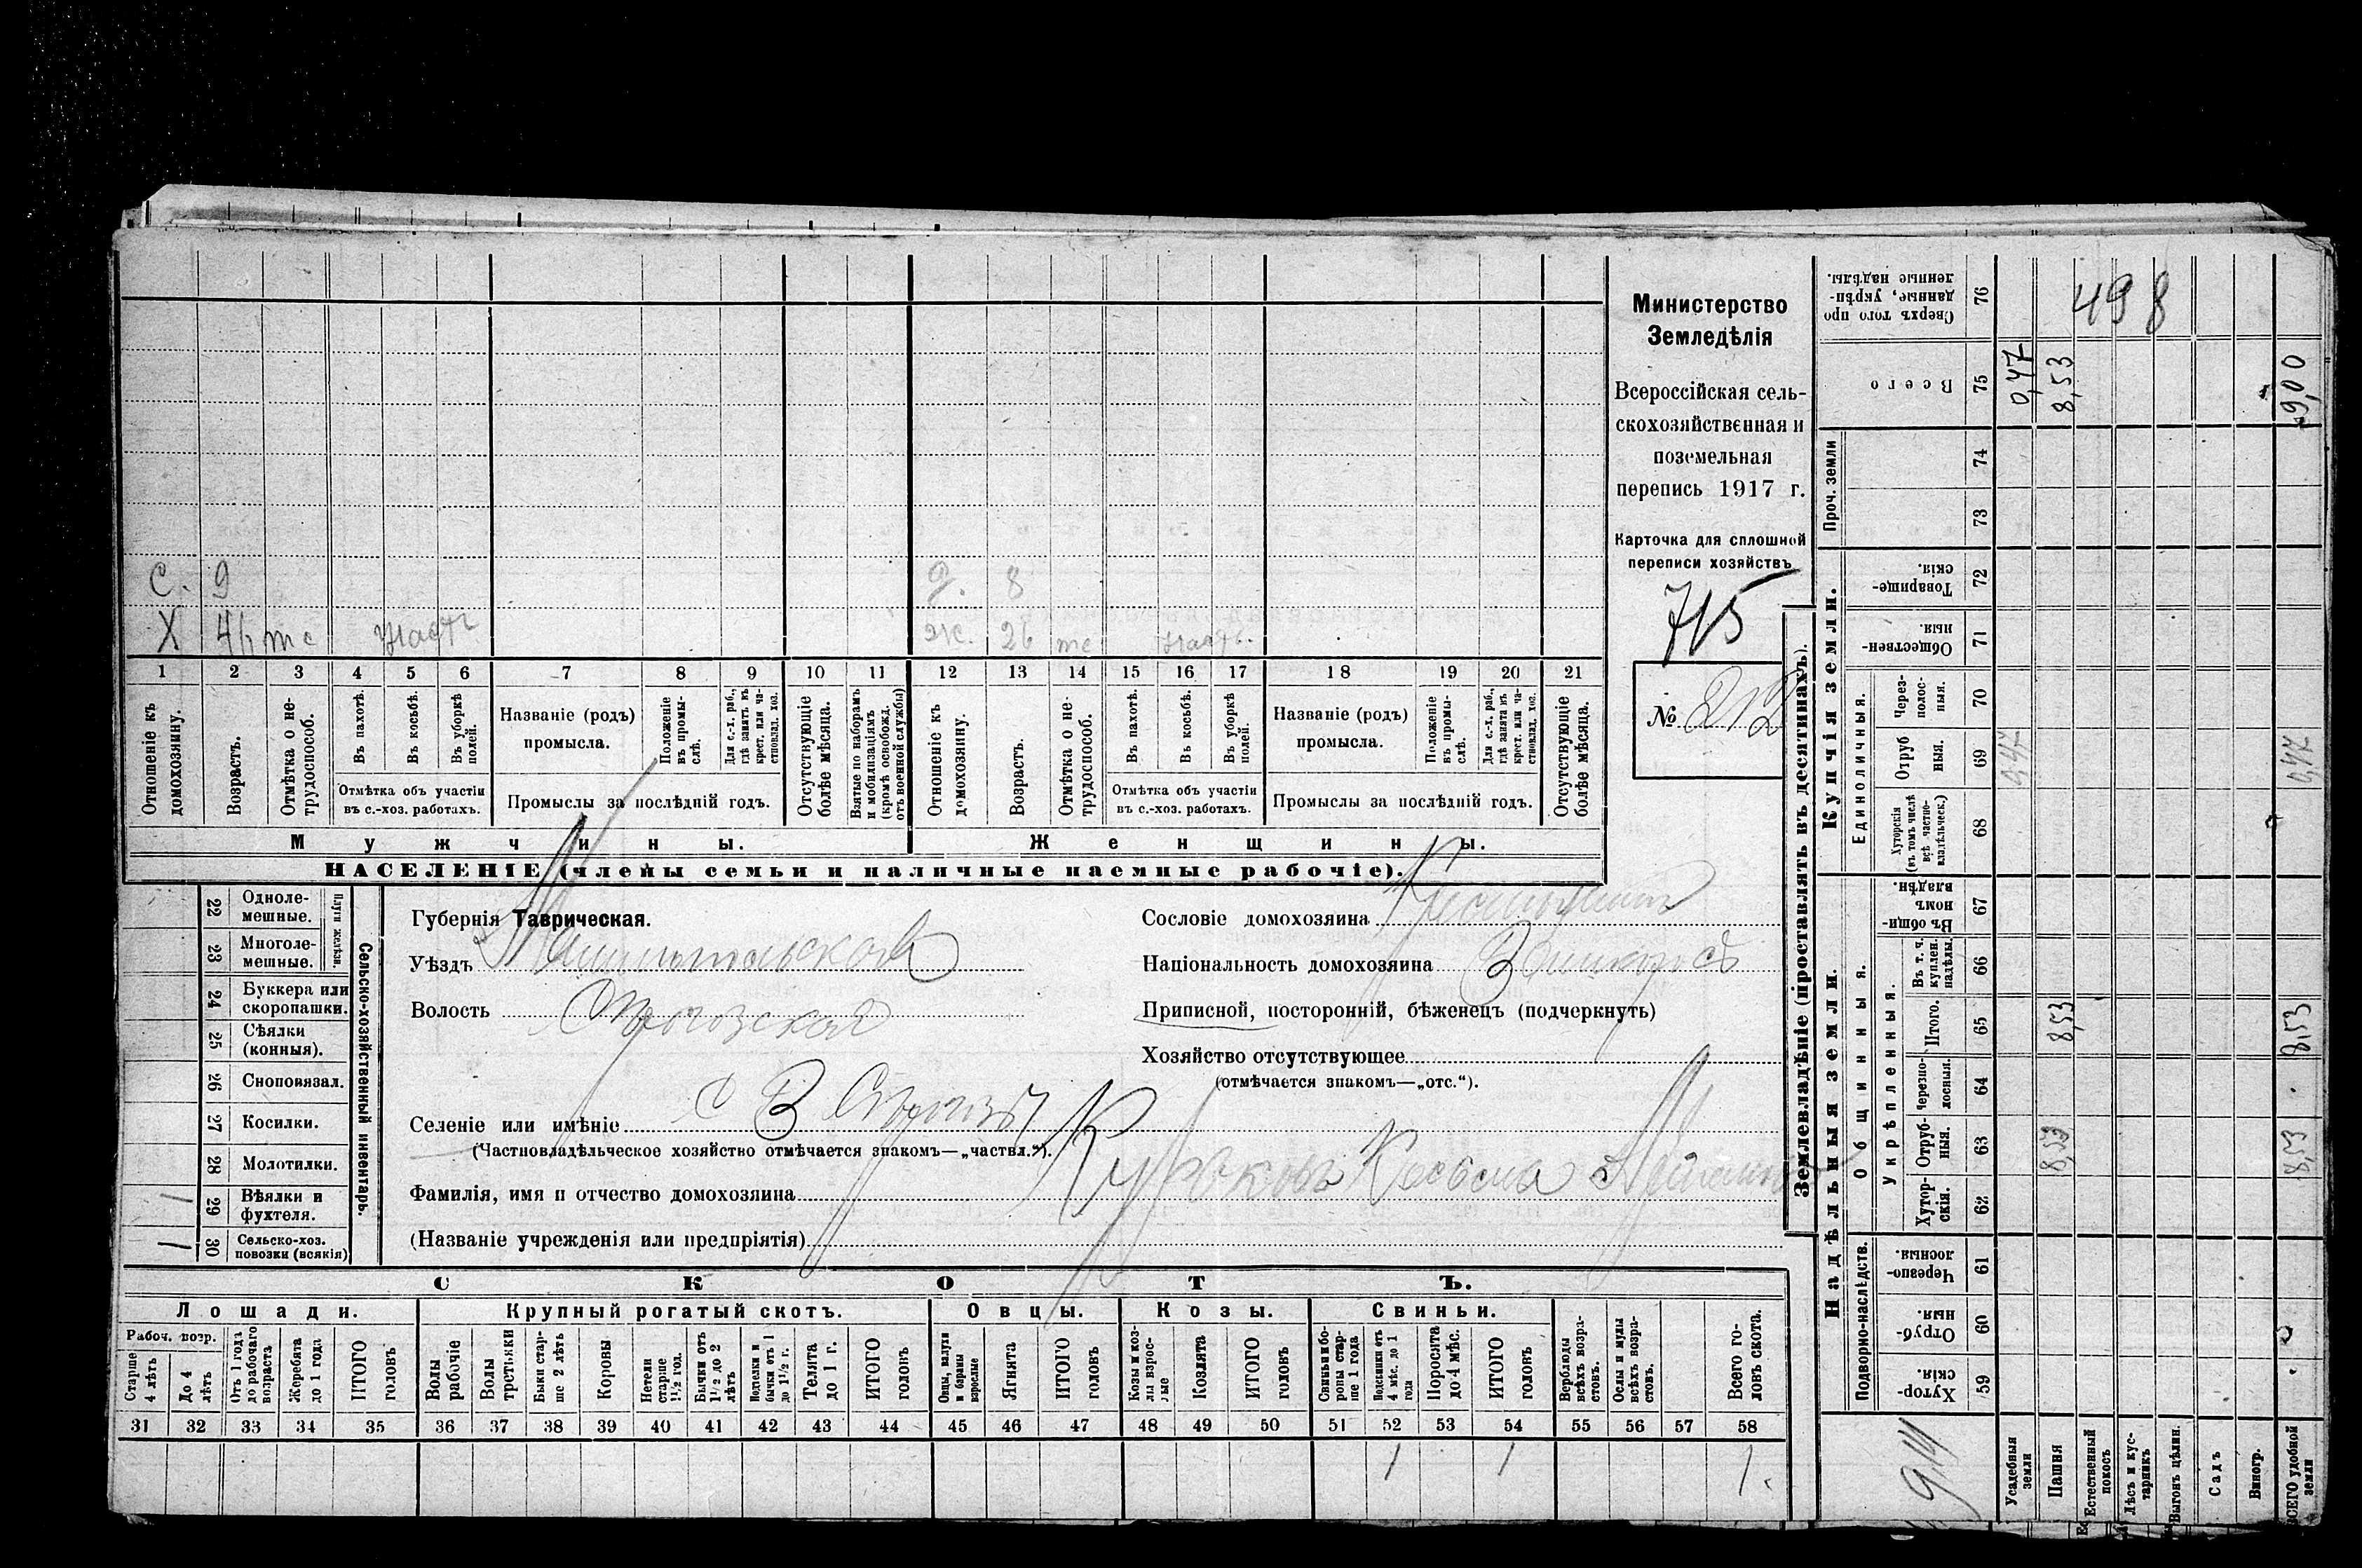 С. 9 д. 8
Х 46 тс ж. 26 тс
1 2 3 4 5 6 7 8 9 10 11 12 13 14 15 16 17 18 19 20 21
Отношеніе къ домохозяину.
Возрастъ.
Отмѣтка о не-трудоспособ.
Въ пахотѣ.
Въ косьбѣ.
Въ уборкѣ полей.
Отмѣтка объ участіи
въ с.-хоз. работахъ.
Названіе (родъ)
промысла.
Положеніе въ промы-слѣ.
Для с.-х. раб., гдѣ занятъ въ крест. или ча-стновлад. хоз.
Промыслы за послѣдній годъ.
Отсутствующіе болѣе мѣсяца.
Взятые по наборамъ и мобилизаціямъ (кромѣ освобожд. отъ военной службы)
Отношеніе къ домохозяину.
Возрастъ.
Отмѣтка о не-трудоспособ.
Въ пахотѣ.
Въ косьбѣ.
Въ уборкѣ полей.
Отмѣтка объ участіи
въ с.-хоз. работахъ.
Названіе (родъ)
промысла.
Положеніе въ промы-слѣ.
Для с.-х. раб., гдѣ занята въ крест. или ча-стновлад. хоз.
Промыслы за послѣдній годъ.
Отсутствующіе болѣе мѣсяца.
Мужчины. Женщины.
НАСЕЛЕНІЕ (члены семьи и наличные наемные рабочіе).
Министерство
Земледѣлія
Всероссійская сель-
скохозяйственная и
поземельная
перепись 1917 г.
Карточка для сплошной
переписи хозяйствъ
715
№ 212
22 Одноле-мешные.
23 Многоле-мешные.
Плуги желѣзн.
24 Буккера или скоропашки.
25 Сѣялки (конныя).
26 Сноповязал.
27 Косилки.
28 Молотилки.
1 29 Вѣялки и фухтеля.
1 30 Сельско-хоз. повозки (всякія)
Сельско-хозяйственный инвентарь.
Губернія Таврическая.
Уѣздъ
Волость
Селеніе или имѣніе с В
(Частновладѣльческое хозяйство отмѣчается знакомъ—„частвл.“).
Фамилія, имя и отчество домохозяина
(Названіе учрежденія или предпріятія)
Сословіе домохозяина
Національность домохозяина
Приписной, посторонній, бѣженецъ (подчеркнуть)
Хозяйство отсутствующее
(отмѣчается знакомъ—„отс.“).
СКОТЪ.
Лошади. Крупный рогатый скотъ. Овцы. Козы. Свиньи.
Рабоч. возр.
Старше 4 лѣтъ
До 4 лѣтъ
Отъ 1 года до рабочаго возраста
Жеребята до 1 года
ИТОГО головъ
Волы рабочіе
Волы третьяки
Быки стар-ше 2 лѣтъ
Коровы
Нетели старше 1½ год.
Бычки отъ 1½ до 2 лѣтъ
Телята до 1 г.
ИТОГО головъ
Овцы, валухи и бараны взрослые
Ягнята
ИТОГО головъ
Козы и коз-лы взрос-лые
Козлята
ИТОГО головъ
Свиньи и бо-ровы стар-ше 1 года
Подсвинки отъ 4 мѣс. до 1 года
Поросята до 4 мѣс.
ИТОГО головъ
Верблюды всѣхъ возра-стовъ.
Ослы и мулы всѣхъ возра-стовъ.
Всего го-ловъ скота.
31 32 33 34 35 36 37 38 39 40 41 42 43 44 45 46 47 48 49 50 51 52 53 54 55 56 57 58
1 1 1.
Землевладѣніе (проставлять въ десятинахъ).
Надѣльныя земли. Купчія земли. Проч. земли
Подворно-наслѣдств. Общинныя. Единоличныя.
Укрѣпленныя.
Хутор-скія. 59
Отруб-ныя. 60
Черезпо-лосныя. 61
Хутор-скія. 62
Отруб-ныя. 63 8,53 8,53
Черезпо-лосныя. 64
Итого. 65 8,53 8,53
Въ т. ч. куплен. надѣлы. 66
Въ общи-номъ владѣн. 67
Хуторскія (въ томъ числѣ всѣ частно-владѣльческ.) 68
Отруб ныя. 69 0,47 0,47
Через-полос-ныя. 70
Обществен-ныя. 71
Товарище-скія. 72
73
74
Всего 75 0,47 8,53 9,00
Сверхъ того про данные, укрѣп-ленные надѣлы. 76
498
914
Усадебныя земли
Пашня
Естественный покосъ
Лѣсъ и кус-тарникъ
Выгонъ цѣлин.
Садъ
Виногр.
ВСЕГО удобной земли